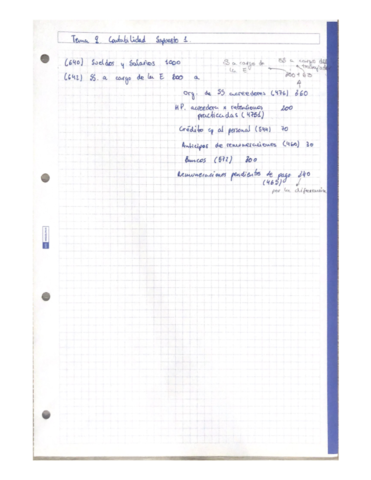 Tema 2 Contabilidad Supuesto 1
(640) Sueldos y Salarios 1000
SS a cargo de la Eª
SS a cargo del
(642) SS. a cargo de la E 200 a
Org. de SS acreedores (476) 660
H.P. acreedora x retenciones 200
practicadas (4751)
Crédito cp al personal (544) 70
Anticipos de remuneraciones (460) 30
Bancos (572) 200
Remuneraciones pendientes de pago 140
(465)
por la diferencia